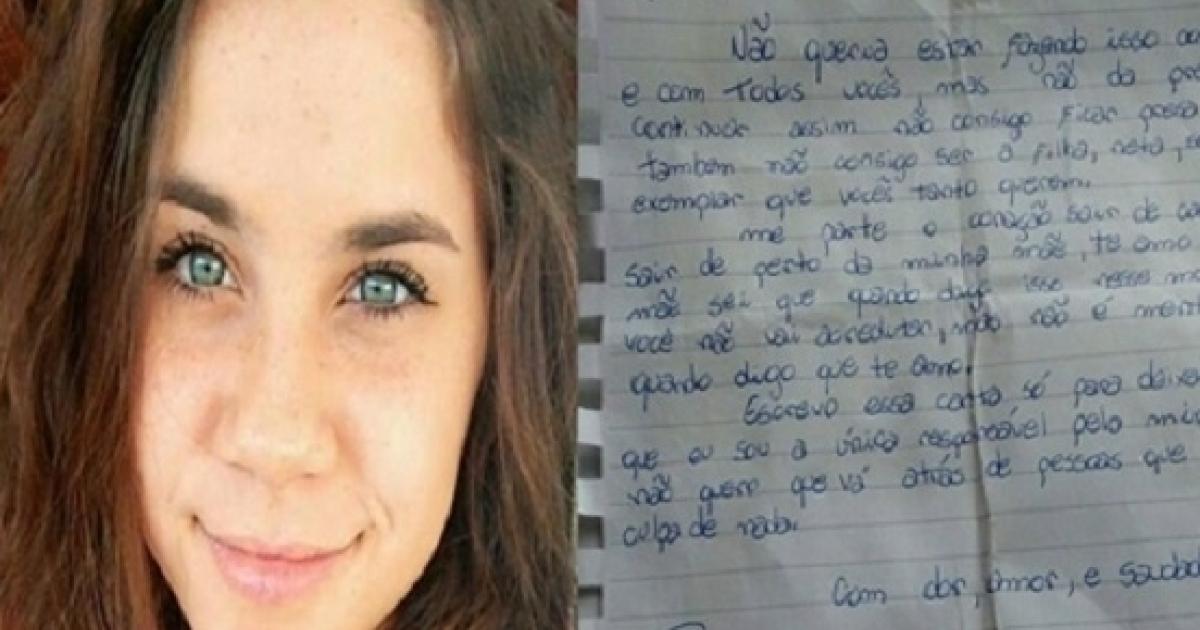 Não queria estar fazendo isso
e com Todos vocês, mas não da
continuar assim não consigo Ficar
também não consigo ser a filha, neta,
exemplar que vocês tanto querem.
me parte o coração sair de
sair de perto da minha mãe, te amo
mãe sei que quando digo isso nesse
você não vai acreditar, não não é
quando digo que te amo.
Escrevo essa carta só para
que eu sou a única responsável pelo
não quero que vá atrás de pessoas que
culpa de nada.
Com dor, amor, e